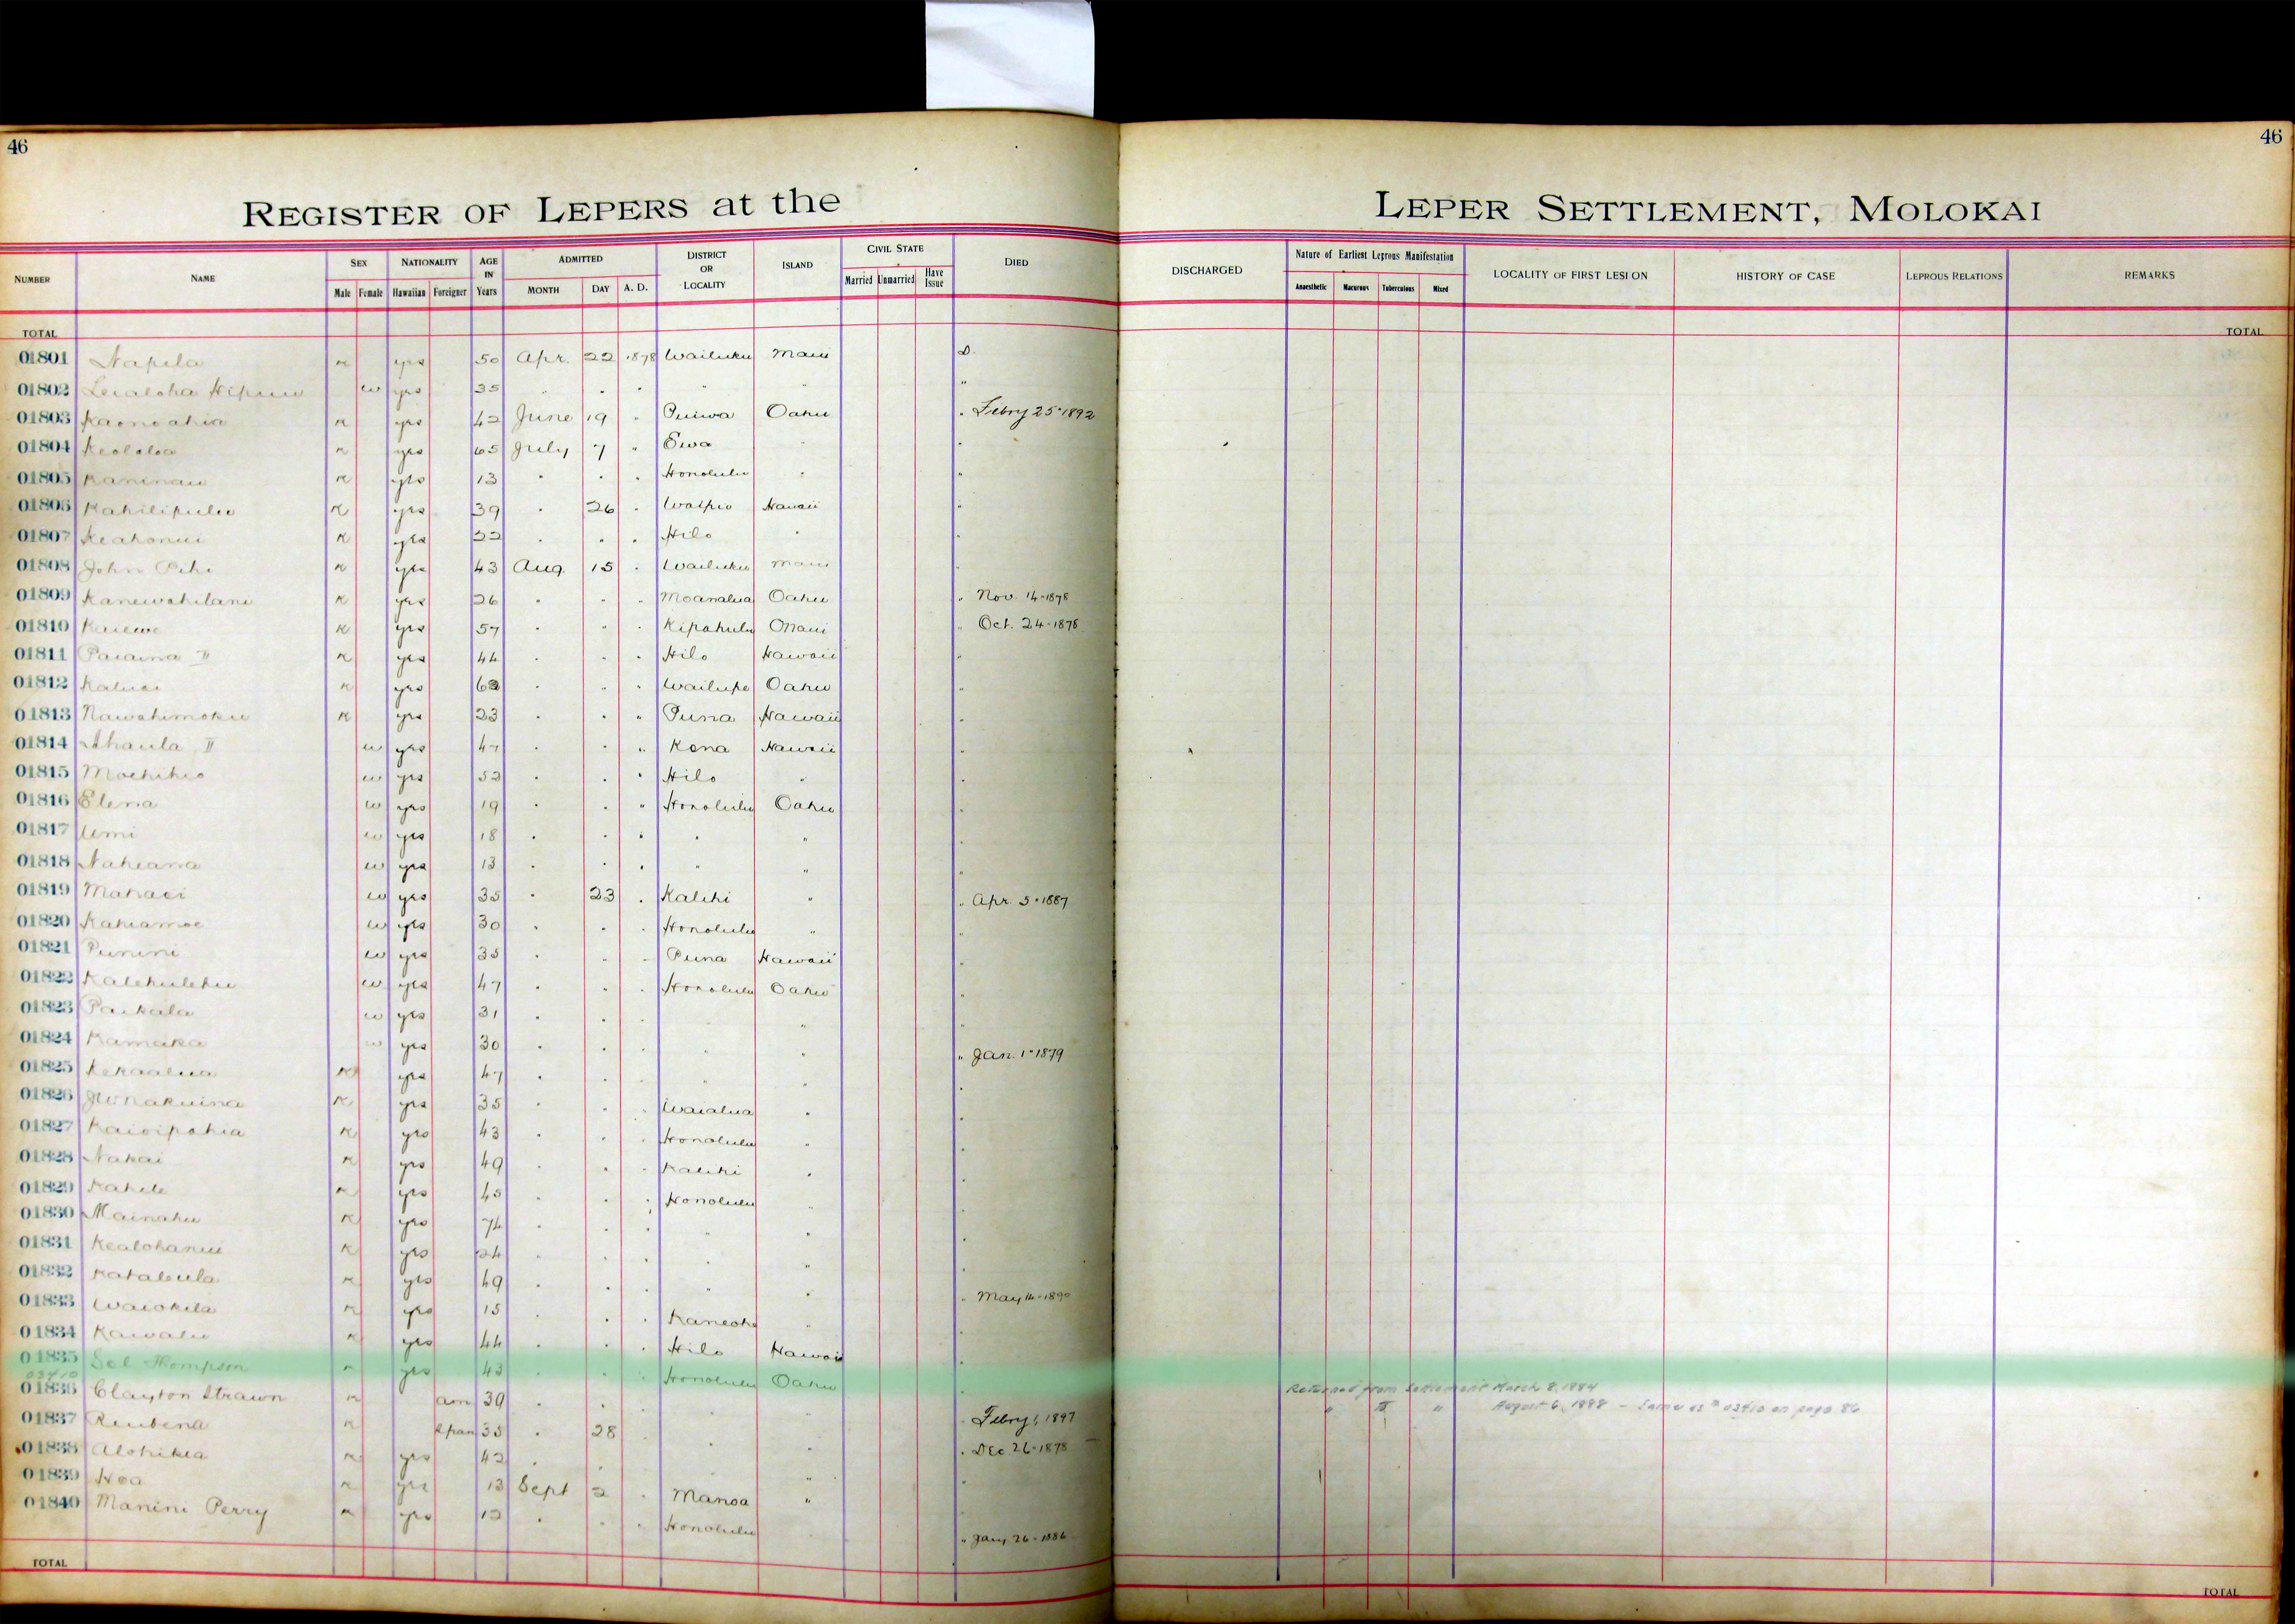 46
46
REGISTER OF LEPERS at the
LEPER SETTLEMENT, MOLOKAI
NUMBER NAME SEX Male Female NATIONALITY Hawaiian Foreigner AGE IN Years ADMITTED MONTH DAY A. D. DISTRICT OR LOCALITY ISLAND CIVIL STATE Married Unmarried Have Issue DIED
DISCHARGED Nature of Earliest Leprous Manifestation Anaesthetic Macurous Tuberculous Mixed LOCALITY OF FIRST LESION HISTORY OF CASE LEPROUS RELATIONS REMARKS
TOTAL TOTAL
01801 Napela m yes 50 Apr. 22 1878 Wailuku Maui D.
01802 Lealoha w yes 35 " " " " " "
01803 Kaonoahia m yes 42 June 19 " Puiwa Oahu " Febry 25 - 1892
01804 Keololoa m yes 65 July 7 " Ewa " "
01805 Kaninau m yes 13 " " " Honolulu " "
01806 Kahilipulu m yes 39 " 26 " Waipio Hawaii "
01807 Keahonui m yes 22 " " " Hilo " "
01808 John m yes 43 Aug. 15 " Wailuku Maui "
01809 Kanewahilani m yes 26 " " " Moanalua Oahu " Nov. 14 - 1878
01810 Kaiewe m yes 57 " " " Kipahulu Maui " Oct. 24 - 1878
01811 Paiaina II m yes 44 " " " Hilo Hawaii "
01812 Kaluai m yes " " " Wailupe Oahu "
01813 Nawahimoku m yes 23 " " " Puna Hawaii "
01814 Ahaula II w yes 47 " " " Kona Hawaii "
01815 w yes 52 " " " Hilo " "
01816 Elena w yes 19 " " " Honolulu Oahu "
01817 Umi w yes 18 " " " " " "
01818 Nakeana w yes 13 " " " " " "
01819 Mahaei w yes 35 " 23 " Kalihi " " Apr. 5 - 1887
01820 Kahiamoe w yes 30 " " " Honolulu " "
01821 Punini w yes 35 " " " Puna Hawaii "
01822 Kalehulehu w yes 47 " " " Honolulu Oahu "
01823 Paikala w yes 31 " " " " "
01824 Kamaka w yes 30 " " " " " Jan. 1 - 1879
01825 Kekaalua m yes 47 " " " " "
01826 m yes 35 " " " Waialua " "
01827 Kaioipahia m yes 43 " " " Honolulu " "
01828 Nakai m yes 49 " " " Kalihi " "
01829 Kahele m yes 45 " " " Honolulu " "
01830 Mainahu m yes 74 " " " " "
01831 Kealohanui m yes 24 " " " " "
01832 Kahaleula m yes 49 " " " " " May 14 - 1890
01833 Waiokila m yes 15 " " " Kaneohe " "
01834 Kawalu m yes 44 " " " Hilo Hawaii "
01835 Sol Thompson m yes 43 " " " Honolulu Oahu "
01836 Clayton Strawn m am 39 " " " " Febry 1, 1897
Returned from Settlement March 8, 1884
" II " August 6, 1888 - Same as # 03410 on page 86
01837 Reubena m 35 " 28 " " " Dec 26 - 1878
01838 Alohikea m yes 42 " " " "
01839 Hoa m yes 13 Sept 2 " Manoa "
01840 Manini Perry m yes 12 " " " Honolulu " Jany 26 - 1886
TOTAL TOTAL